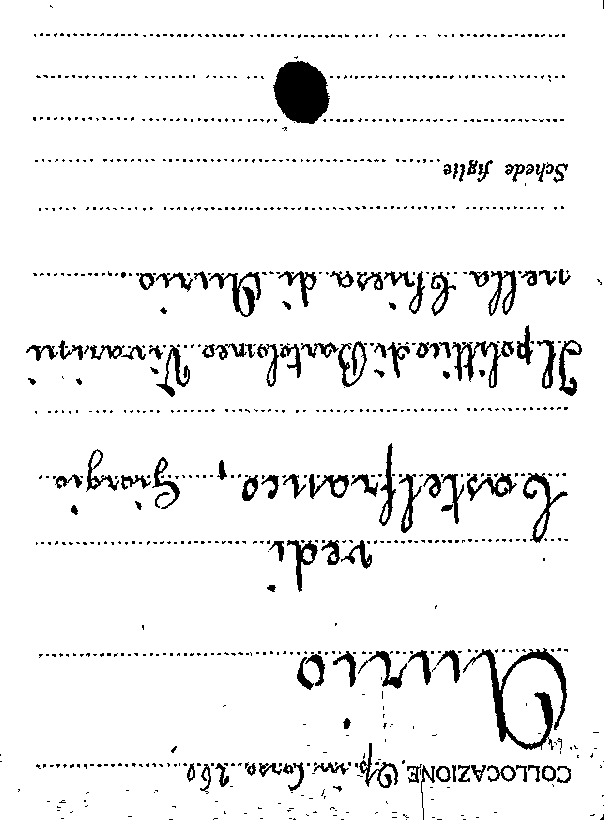 COLLOCAZIONE Op. in Corso 260
Aurio
vedi
Castelfranco, Giorgio
Il polittico di Bartolomeo Vivarini
nella Chiesa di Aurio
Schede figlie